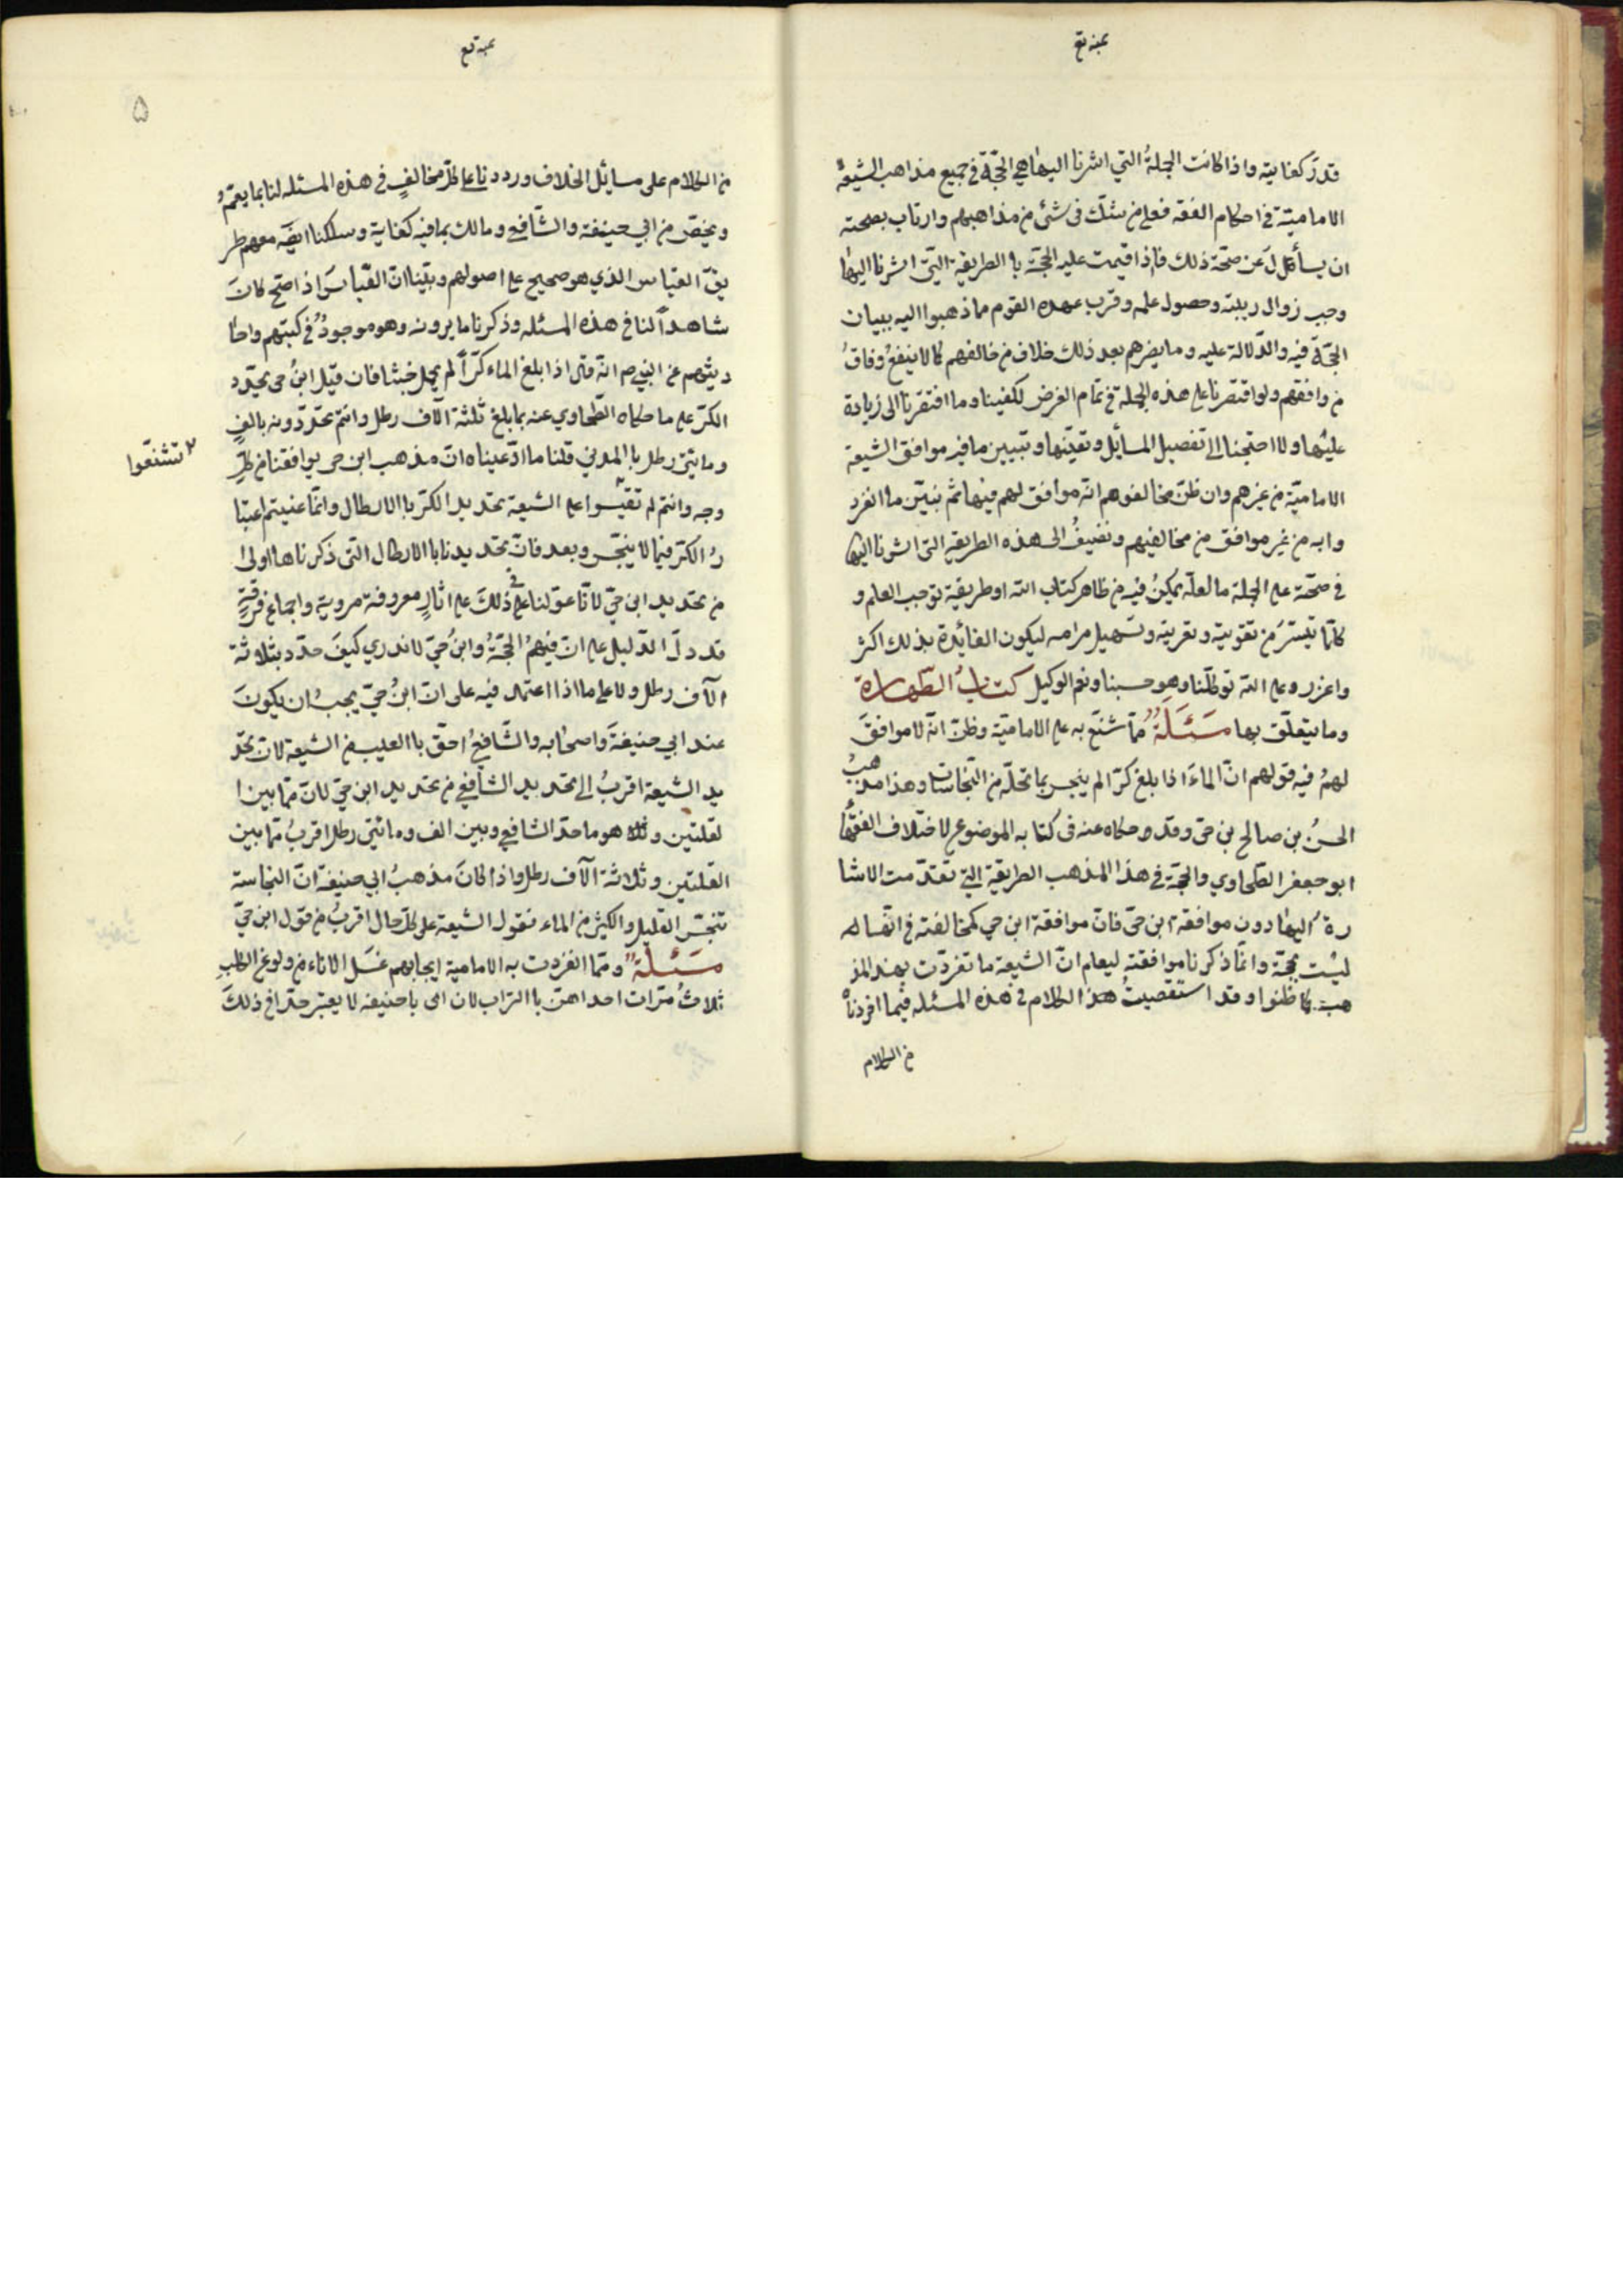 قدر كفاية واذا كانت الجملةُ التي اشرنا اليها هي الحجّة في جميع مذاهب الشيعة
الاماميّة في احكام الفقه فعلى من شكّ في شئ من مذاهبهم وارتاب بصحته
ان يسأل عن صحّة ذلك فاذا اقيمت عليه الحجّة باالطريقة التيّ اشرنا اليها
وجب زوال ريبته وحصول علمه وقرب عهده القوم مما ذهبوا اليه ببيان
الحجّة فيه والدّلالة عليه وما يضرهم بعد ذلك خلاف من خالفهم كما لا ينفعُ وفاقُ
من وافقهم ولو اقتصرنا على هذه الجملة في تمام الغرض لكفينا وما افتقرنا الى زيادة
عليها ولا احتجنا الى تفصيل المسائل وتعيّنها وتبيين ما فيه موافق الشيعة
الاماميّة من غيرهم وان ظنّ مخالفوهم انّه موافق لهم فيها ثم نبيّن ما انفرد
وا به من غير موافق من مخالفيهم ونضيفُ الى هذه الطريقه التى اشرنا اليها
في صحّته على الجملة ما لعلّه يمكنُ فيه من ظاهر كتاب الله او طريقة توجب العلم و
كلّما تيسّر من تقوية وتقريبه وتسهيل مرامه ليكون الفائدة بذلك اكثر
واغزر وعلى الله توكّلنا وهو حسبنا ونعم الوكيل كتابُ الطّهارة
وما يتعلّق بها مسَئلةٌ ممّا شنّع به على الاماميّة وظنّ انّه لا موافقَ
لهمُ فيه قولهم انّ الماءَ اذا بلغ كرّا لم ينجس بما تحلّه من النّجاسات وهذا مذهبُ
الحسنُ بن صالح بن حىّ وقد حكاه عنه فى كتابه الموضوع لاختلاف الفقهاء
ابو جعفر الطّحاوي والحجّة في هذا المذهب الطريقة التي تقدّمت الاشا
رة اليها دون موافقة ابن حىّ فانّ موافقة ابن حي كمخالفته في انّها
ليست بحجّة وانّما ذكرنا موافقته ليعلم انّ الشيعة ما تفرّدت بهذ المذ
هب كما ظنوا وقد استقصيتُ هذا الكلام في هذه المسئله فيما افردناه
من الكلام
۵
من الكلام على مسائل الخلاف ورددنا على كلّ مخالفٍ في هذه المسئله لنا بما يعمّ و
ويخصّ من ابي حنيفة والشّافعي ومالك بما فيه كفاية وسلكنا ايضَه معهم طر
يقَ القياس الذي هو صحيح على اصولهم وبيّنا انّ القيّاسَ اذا صحّ كانَ
شاهداً لنا في هذه المسئله وذكرنا ما يرونه وهو موجودٌ في كتبهم واحا
ديثهم عن النبي ص انّه قال اذا بلغ الماء كرّاً لم يحمل خبثا فان قيل ابنُ حى يحدّد
الكرّ على ما حكاه الطّحاوي عنه بما بلغ ثلثة الآف رطل وانتم تحدّدونه بالفٍ
ومايتي رطل باالمدني قلنا ما ادّعيناه انّ مذهب ابن حى يوافقنا من كلّ
تشنّعوا
وجه وانتم لم تقيسوا على الشيعة تحديد الكرّ باالارطال وانّما عنيتم اعتبا
رُ الكرّ فيما لا ينجّس وبعد فانّ تحديدنا باالارطال التى ذكرناها اولى
من تحديد ابن حيّ لانّا عوّلنا على في ذلكَ على اثارٍ معروفة مروية واجماع فرقةٍ
قد دلّ الدّليل على انّ فيهمُ الحجّةُ وابنُ حيّ لا ندري كيفَ حدّد بثلاثة
الآف رطل ولا على ما اذا اعتمد فيه على انّ ابنُ حيّ يجبُ ان يكونَ
عند ابي حنيفةَ واصحابه والشّافعيُ احقّ باالعيب من الشيعة لانّ تحد
يد الشيعة اقربُ الى تحديد الشّافعي من تحديد ابن حيّ لانّ ممّا بين ا
لقلتين هو ما حدّ الشافعي وبين الف ومائتي رطل اقربُ ممّا بين
القلتين وثلاثة الآف رطل واذا كانَ مذهبُ ابي حنيفة انّ النجاسة
تنجّس القليل والكثير من الماء فقول الشيعة على كلّ حال اقربُ من قول ابن حيّ
مسَئلةٌ وممّا انفردت به الامامية ايجابهم غَسل الاناء من ولوغ الكلب
ثلاثُ مرّات احداهنّ باالتراب لان ابى باحنيفه لا يعتبر حدّا في ذلكَ